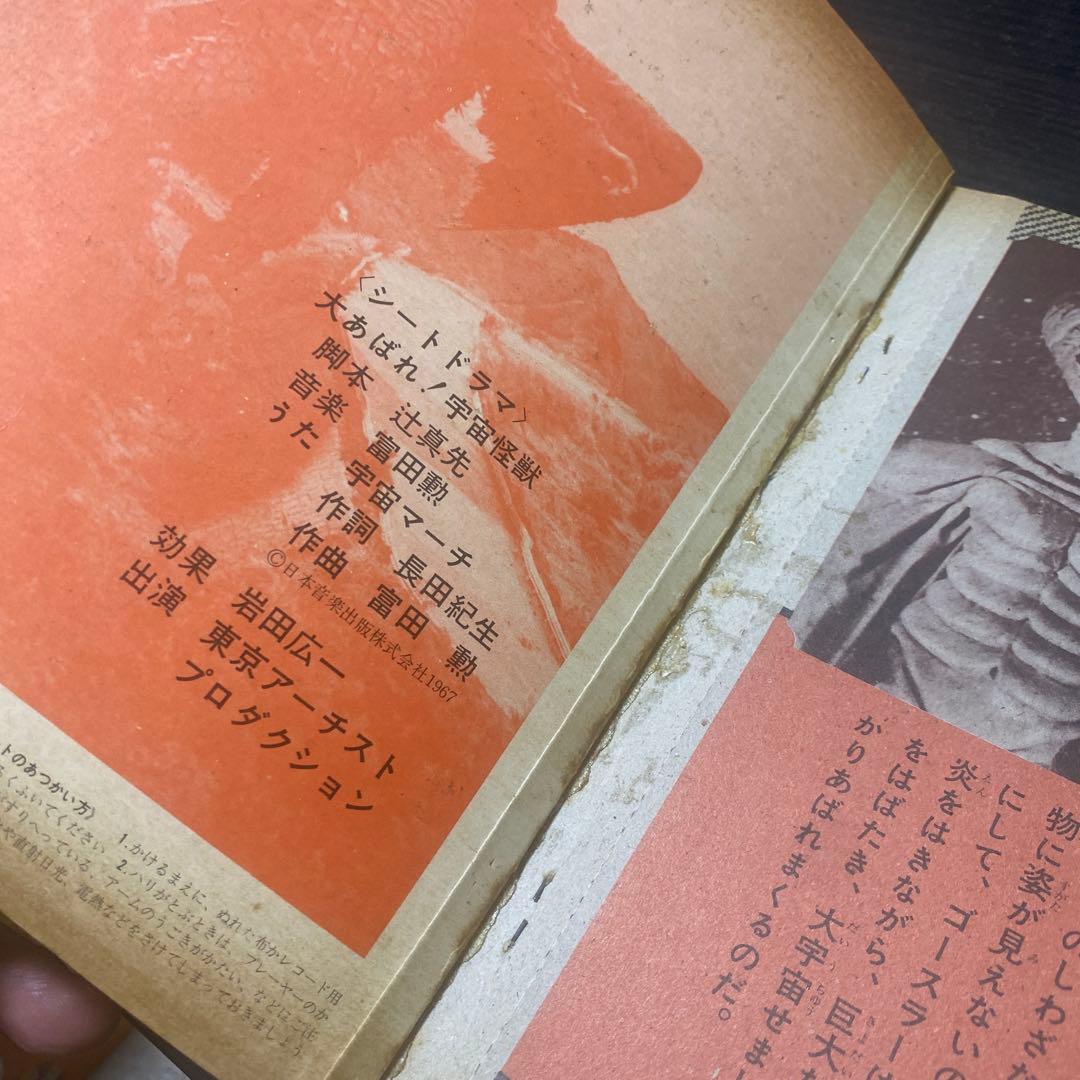 〈シートドラマ〉
大あばれ！宇宙怪獣
脚本 辻真先
音楽 富田勲
うた 宇宙マーチ
作詞 長田紀生
作曲 富田 勲
©日本音楽出版株式会社1967
効果 岩田広一
出演 東京アーチスト
プロダクション
トのあつかい方〉 1.かけるまえに、ぬれた布かレコード用
るくふいてください 2.ハリがとぶときは、プレーヤーのか
すりへっている、アームのうごきがかたい、などにご注
や直射日光、電熱などをさけてしまっておきましょう
のしわざな
物に姿が見えないの
にして、ゴースラーは
炎をはきながら、巨大な
をはばたき、大宇宙せまし
かりあばれまくるのだ。